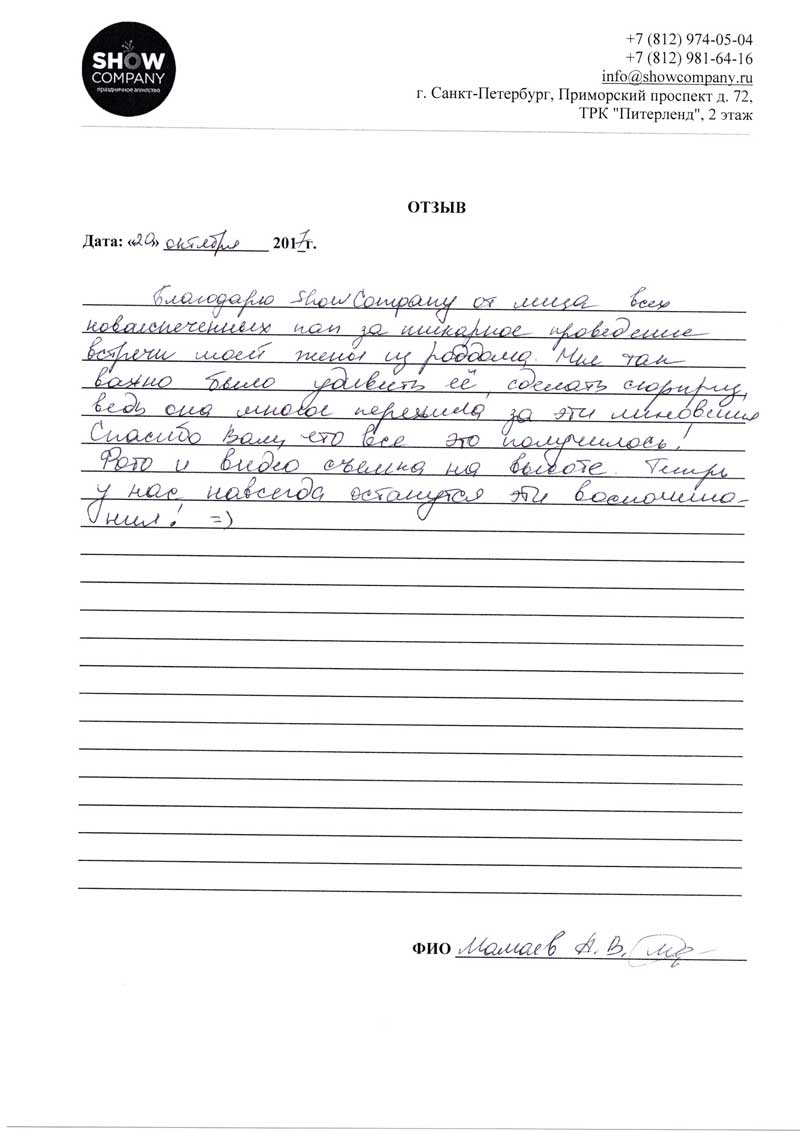 SHOW
COMPANY
праздничное агентство
+7 (812) 974-05-04
+7 (812) 981-64-16
info@showcompany.ru
г. Санкт-Петербург, Приморский проспект д. 72,
ТРК "Питерленд", 2 этаж
ОТЗЫВ
Дата: «20» октября 2017г.
Благодарю ShowCompany от лица всех
новоиспеченных пап за шикарное проведение
встречи моей жены из роддома. Мне так
важно было удивить её, сделать сюрприз,
ведь она многое пережила за эти мгновения
Спасибо Вам, что все это получилось!
Фото и видео съемка на высоте. Теперь
у нас навсегда останутся эти воспомина-
ния! =)
ФИО Мамаев А.В.